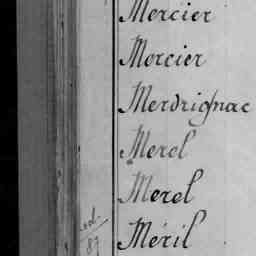 Mercier
Mercier
Merdrignac
Merel
Merel
Méril
87